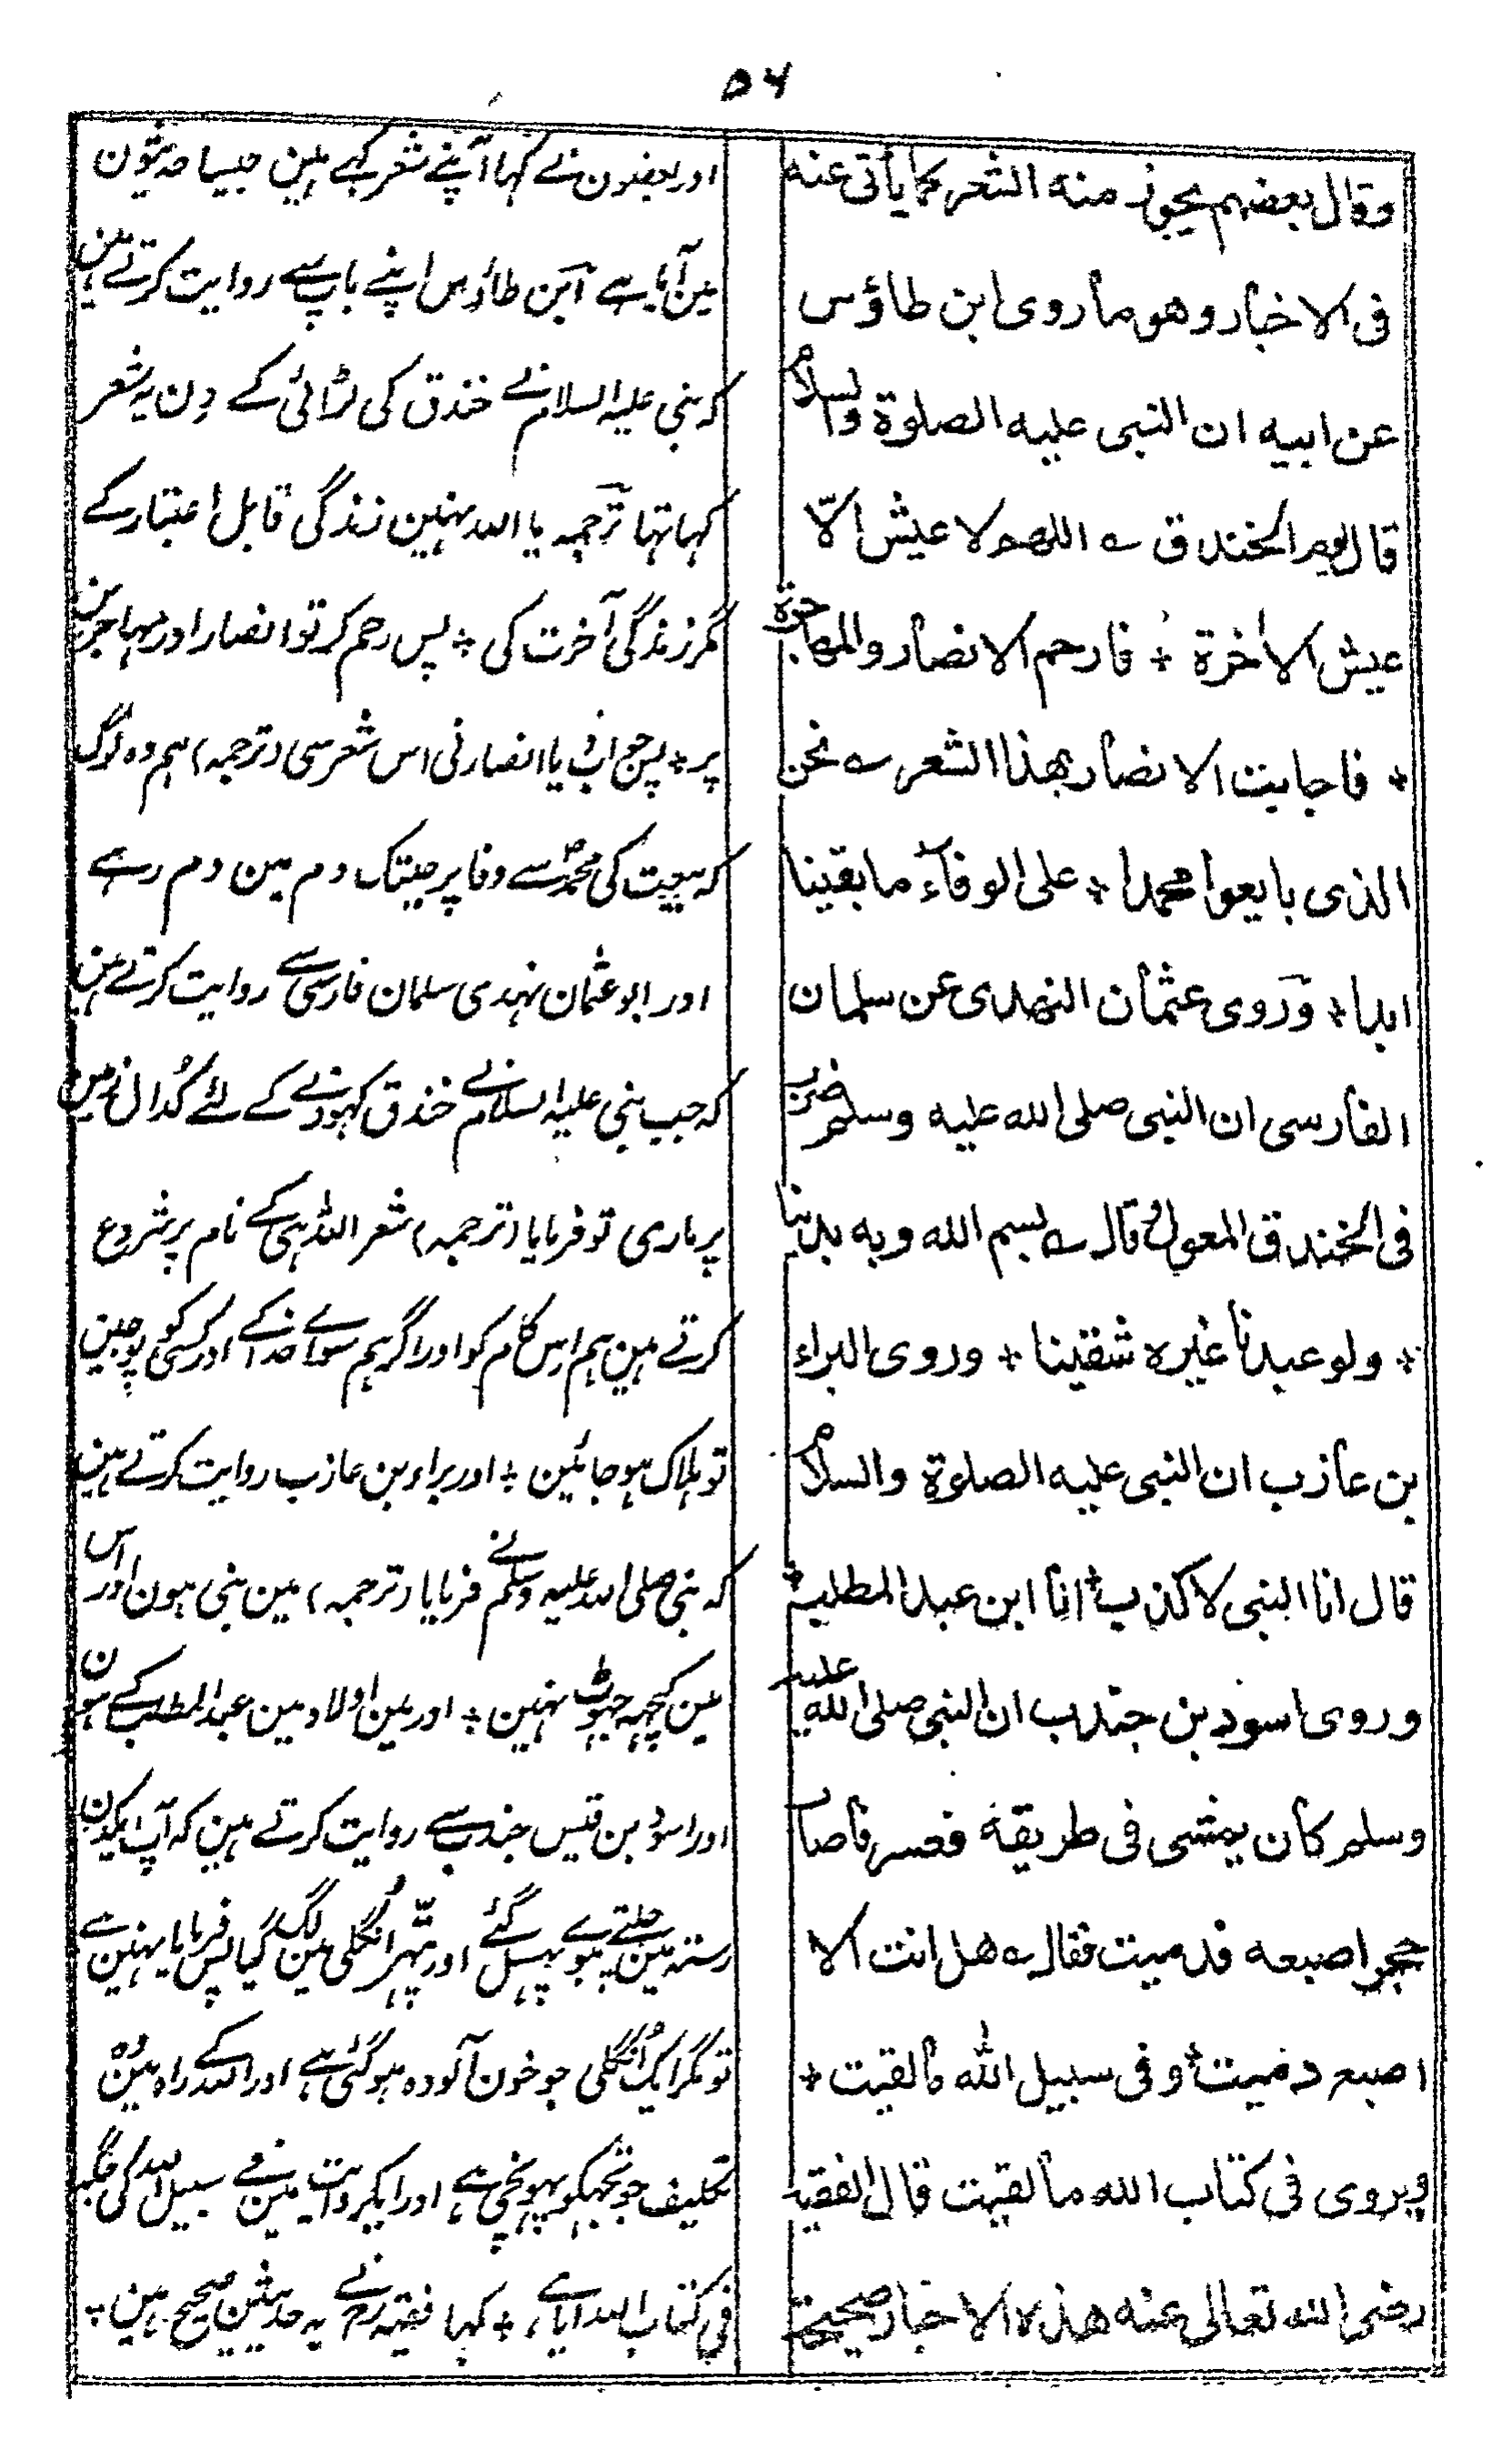 ٥٦
وقال بعضهم يجوز منه الشعر كما يأتى عنه
فى الاخبار وهو ما روى ابن طاؤس
عن ابيه ان النبى عليه الصلوة والسلام
قال يوم الخندق ے اللهم لا عيش الّا
عيش الاٰخرة ÷ فارحم الانصار والمهاجرة
÷ فاجابت الانصار بهذا الشعر ے نحن
الذى بايعوا محمدا ÷ على الوفاء ما بقينا
ابدا ÷ وروى عثمان النهدى عن سلمان
الفارسى ان النبى صلى الله عليه وسلم ضرب
فى الخندق المعول وقال ے بسم الله وبه بدينا
÷ ولو عبدنا غيره شقينا ÷ وروى البراء
بن عازب ان النبى عليه الصلوة والسلام
قال انا النبى لا كذب ÷ انا ابن عبد المطلب ÷
وروى اسود بن جندب ان النبى صلى الله عليه
وسلم كان يمشى فى طريقة فعسر فاصاب
حجر اصبعه فدميت فقال ے هل انت الا
اصبع دميت ÷ وفى سبيل الله ما لقيت ÷
ويروى فى كتاب الله ما لقيت قال الفقيه
رضى الله تعالى عنه هذه الاخبار صحيحة
اور بعضون نے کہا آپنے شعر کہے ہین جیسا حدیثون
مین آیا ہے ابن طاؤس اپنے باپ سے روایت کرتے ہین
کہ نبی علیہ السلام نے خندق کی لڑائی کے دن یہ شعر
کہا تہا ترجمہ یا اللہ نہین زندگی قابل اعتبار کے
مگر زندگی آخرت کی ÷ پس رحم کر تو انصار اور مہاجرین
پر ÷ پس جواب دیا انصار نی اس شعر سی (ترجمہ) ہم وہ لوگ
کہ بیعت کی محمدؐ سے وفا پر جبتک دم مین دم رہے
اور ابو عثمان نہدی سلمان فارسی سے روایت کرتے ہین
کہ جب نبی علیہ السلام نے خندق کہودنے کے لئے کُدال زمین
پر ماری تو فرمایا (ترجمہ) شعر اللہ ہی کے نام پر شروع
کرتے ہین ہم اس کام کو اور اگر ہم سواے خدا کے اور کسی کو پوجین
تو ہلاک ہو جائین ÷ اور براء بن عازب روایت کرتے ہین
کہ نبی صلی اللہ علیہ وسلم نے فرمایا (ترجمہ) مین نبی ہون اور اس
مین کچہہ جہوٹ نہین ÷ اور مین اولاد مین عبد المطلب کے ہون
اور اسود بن قیس جندب سے روایت کرتے ہین کہ آپ ایکدن
رستہ مین چلتے ہوے پہسل گئے اور پتہر انگلی مین لگ گیا پس فرمایا نہین ہے
تو مگر ایک اُنگلی جو خون آلودہ ہو گئی ہے اور اللہ کے راہ مین وہ
تکلیف جو تجہکو پہونچی ہے اور ایک روایت مین فے سبیل اللہ کی جگہہ
فی کتاب اللہ آیا ہے ÷ کہا فقیہ رح نے یہ حدیثین صحیح ہین ÷